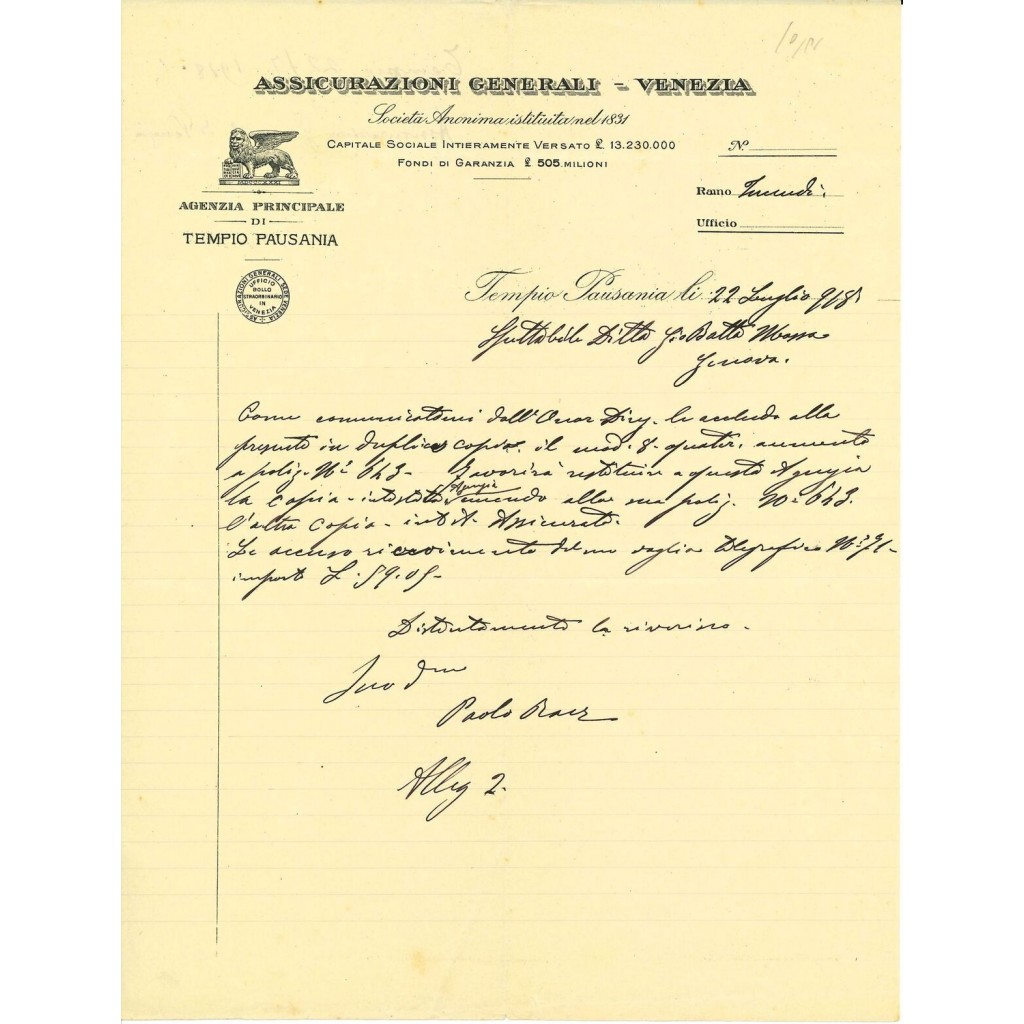 ASSICURAZIONI GENERALI - VENEZIA
Società Anonima istituita nel 1831
CAPITALE SOCIALE INTIERAMENTE VERSATO £ 13.230.000
FONDI DI GARANZIA £ 505 MILIONI
N°
Ramo Incendi.
Ufficio
MDCCCXXXI
AGENZIA PRINCIPALE
DI
TEMPIO PAUSANIA
ASSICURAZIONI GENERALI SEDE VENEZIA
UFFICIO
BOLLO
STRAORDINARIO
IN
VENEZIA
Tempio Pausania li 22 Luglio 918
Spettabile Ditta Gio Batta Mossa
Genova.
Come comunicatomi dall' Onor Direz. le accludo alla
presente in duplice copia il mod. 8. quater. aumento
a poliz. N° 643- Favorirà restituire a questa Agenzia
la copia - intestata Agenzia alla sua poliz. N° 643.
l'altra copia - Assicurato.
Le accuso ricevimento del suo vaglia telegrafico N° 71-
importo L. 59.05-
Distintamente la riverisco.
Suo
Paolo
Alleg 2.